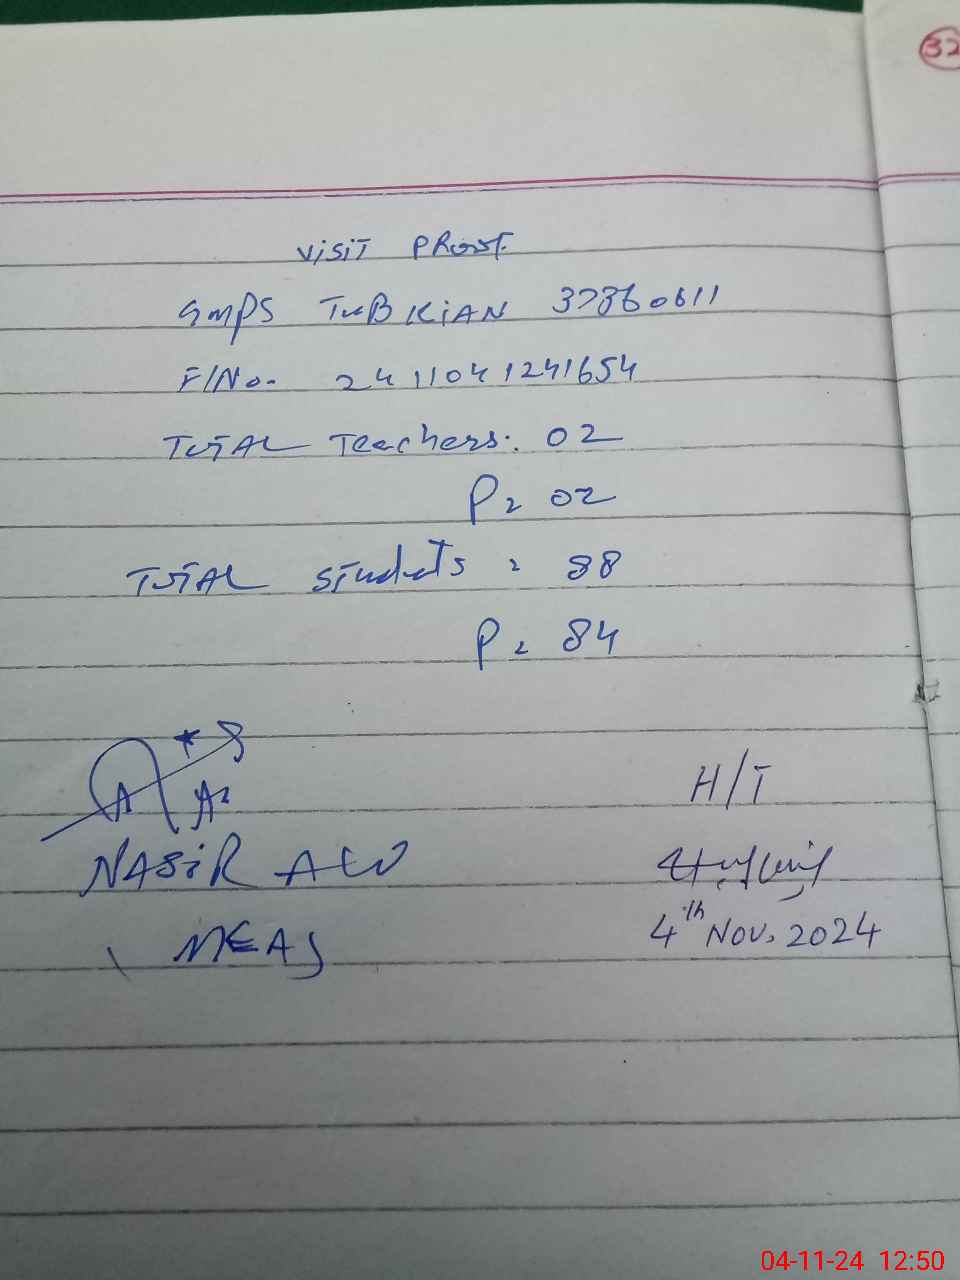 32
VISIT PROOF.
GMPS TUBKIAN 37360611
F/No. 2411041241654
TOTAL Teachers: 02
P= 02
TOTAL students = 88
P= 84
H/T
NASIR ALI
4th Nov, 2024
MEA
04-11-24 12:50